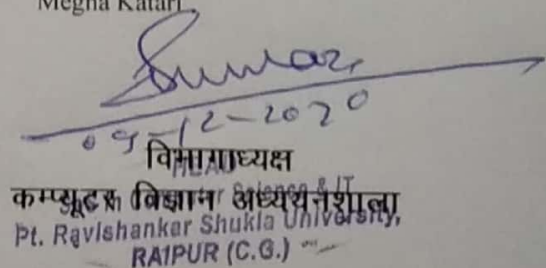 Megha Katari
09-12-2020
विभागाध्यक्ष
HEAD
कम्प्यूटर विज्ञान अध्ययनशाला
Science & IT
Pt. Ravishankar Shukla University,
RAIPUR (C.G.)